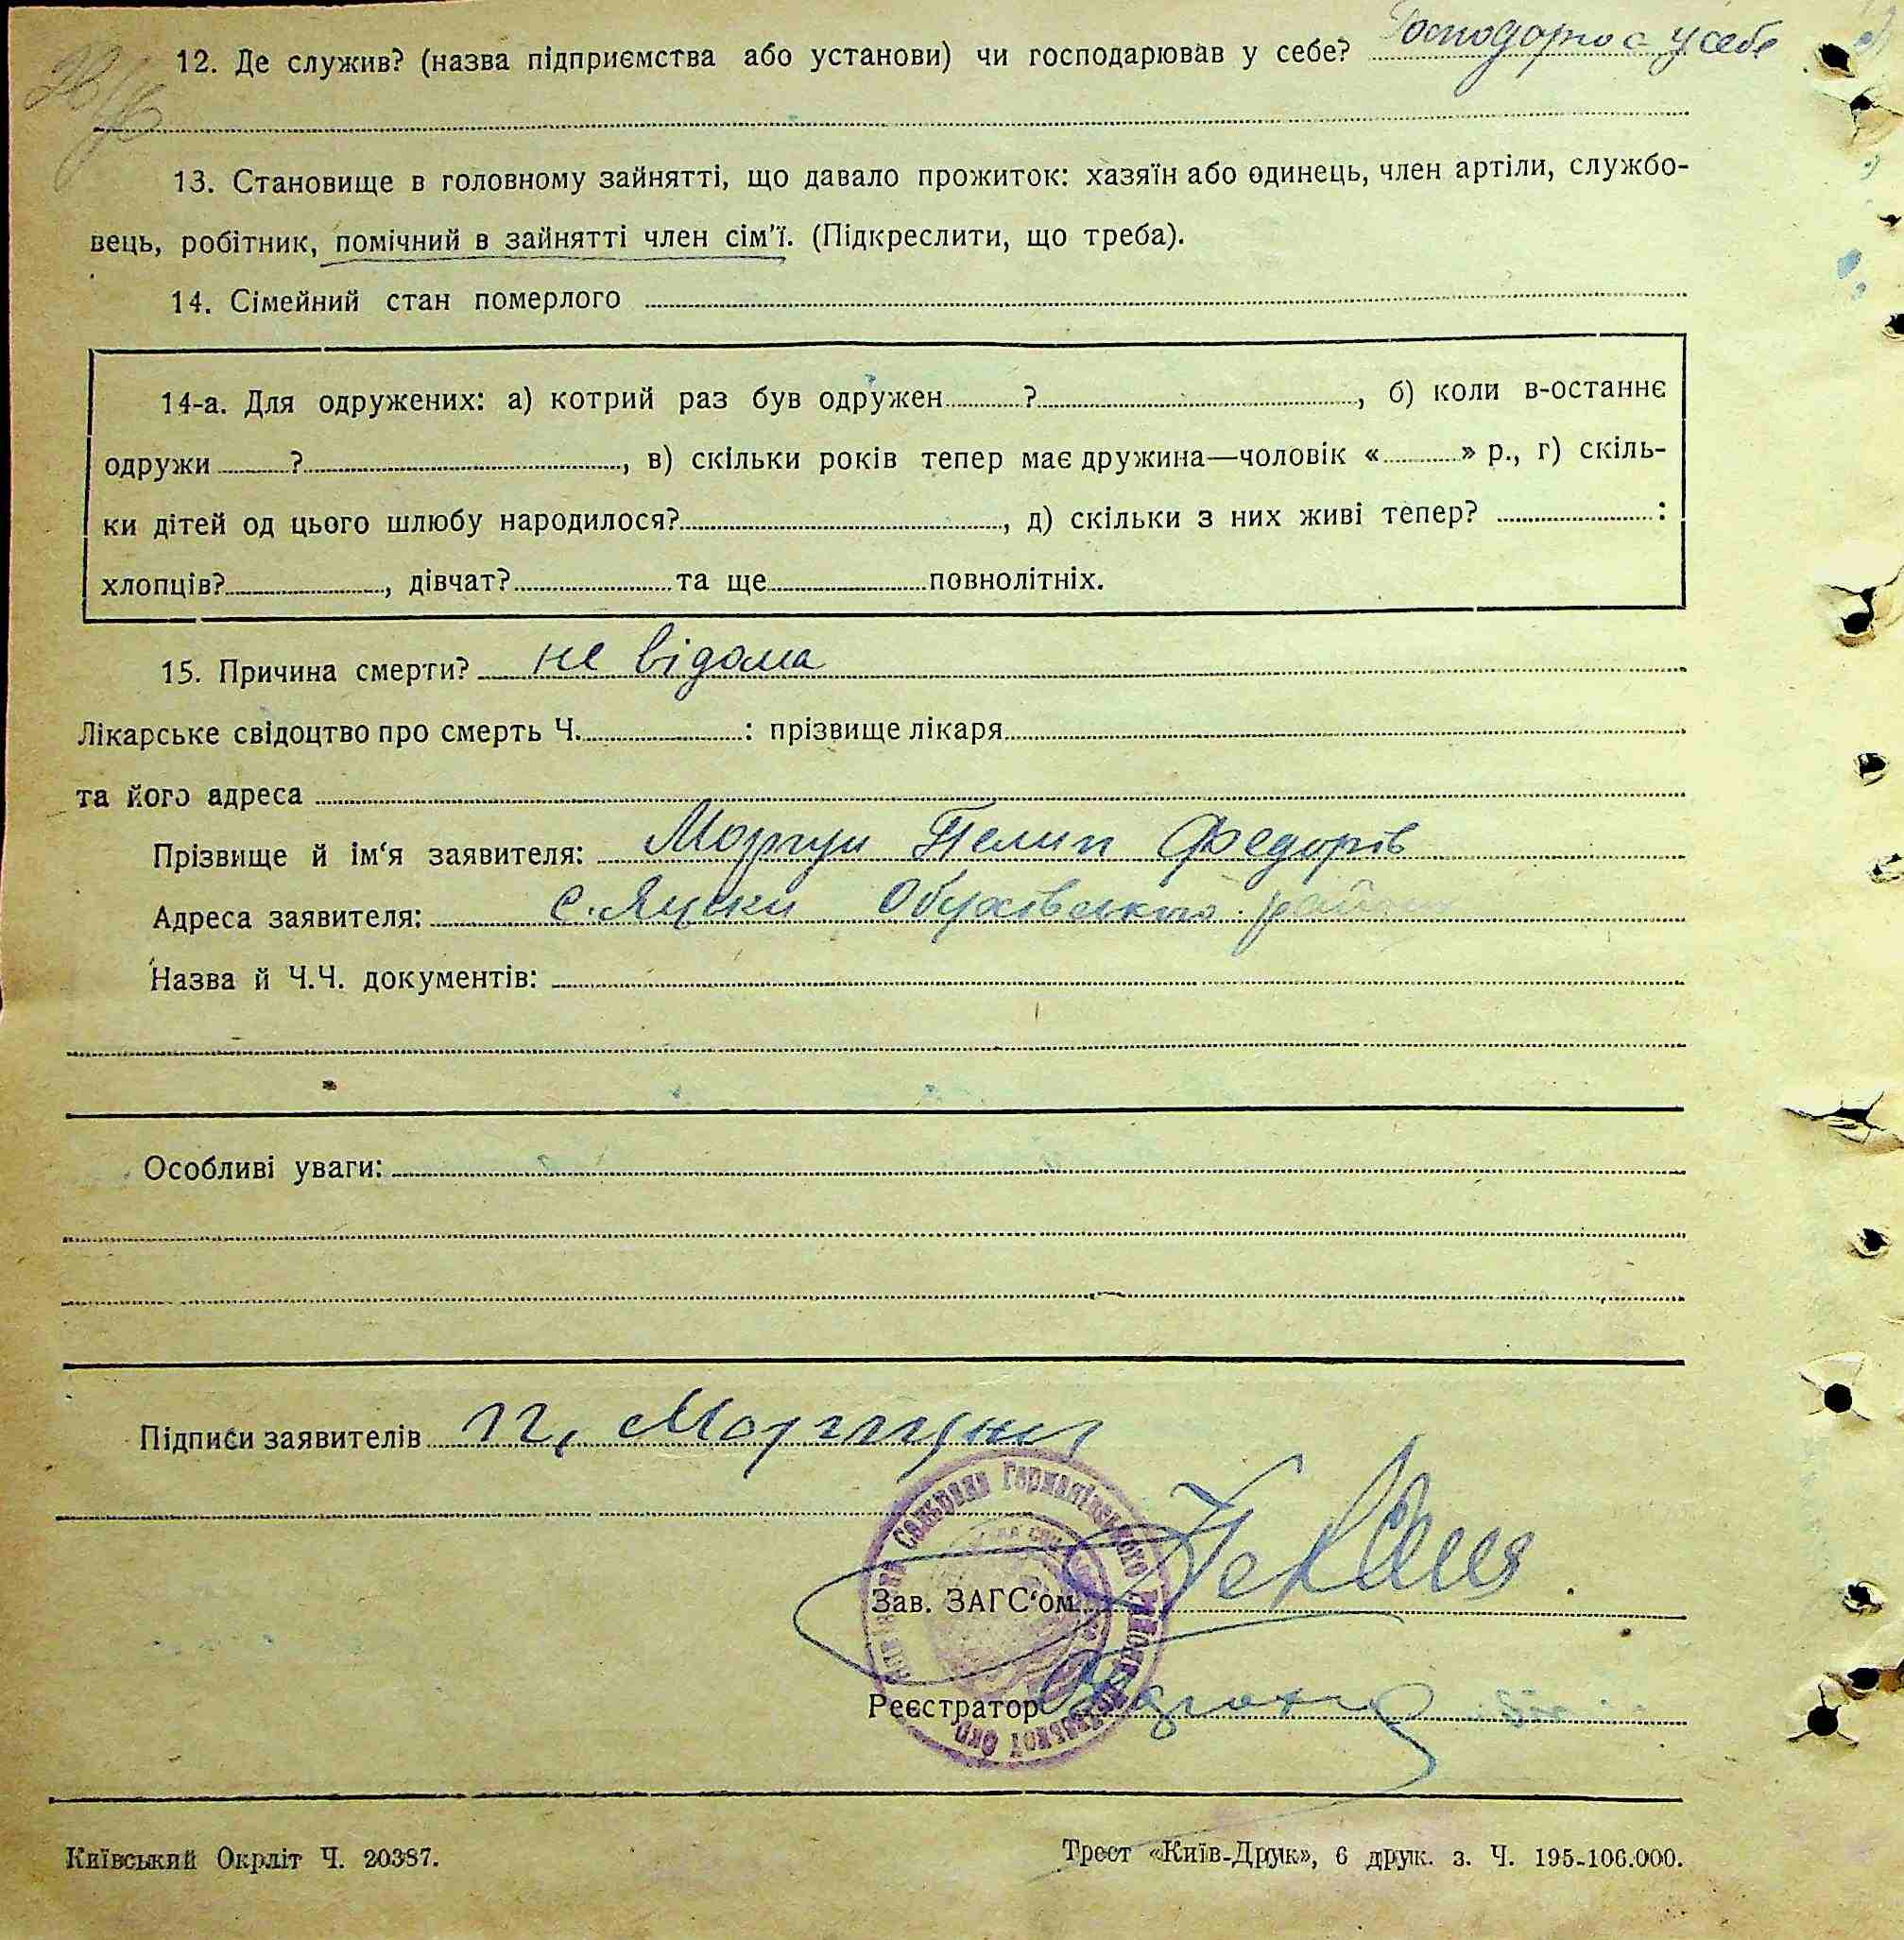 12. Де служив? (назва підприємства або установи) чи господарював у себе? Господарює у себе
13. Становище в головному зайнятті, що давало прожиток: хазяїн або одинець, член артіли, службо-
вець, робітник, помічний в зайнятті член сім'ї. (Підкреслити, що треба).
14. Сімейний стан померлого
14-а. Для одружених: а) котрий раз був одружен ? , б) коли в-останнє
одружи ? , в) скільки років тепер має дружина—чоловік « » р., г) скіль-
ки дітей од цього шлюбу народилося? , д) скільки з них живі тепер? :
хлопців? , дівчат? та ще повнолітніх.
15. Причина смерти? не відома
Лікарське свідоцтво про смерть Ч. : прізвище лікаря
та його адреса
Прізвище й ім‘я заявителя: Моргун Пелип Федорів
Адреса заявителя: с. Яцьки Обухівського району
Назва й Ч.Ч. документів:
Особливі уваги:
Підписи заявителів П. Моргун
Зав. ЗАГС‘ом
Реєстратор
Київський Окрліт Ч. 20387.
Трест «Київ-Друк», 6 друк. з. Ч. 195-106.000.